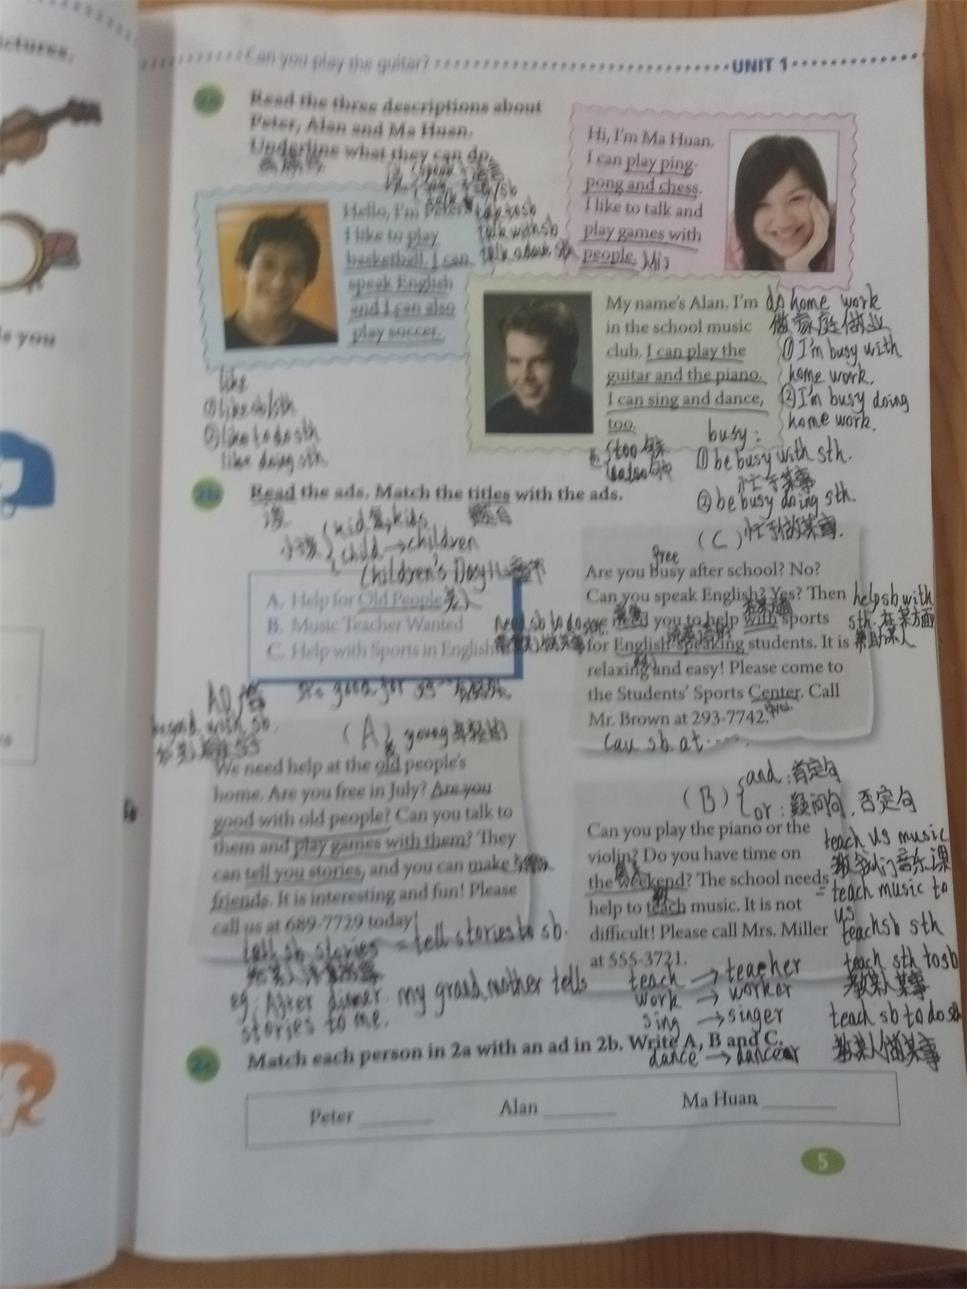 ictures,
s you
Can you play the guitar?
UNIT 1
2a Read the three descriptions about
Peter, Alan and Ma Huan.
Underline what they can do.
Hi, I'm Ma Huan.
I can play ping-
pong and chess.
I like to talk and
play games with
people.
Hello, I'm Peter.
I like to play
basketball. I can
speak English
and I can also
play soccer.
talk to sb
talk with sb
talk about sth
My name's Alan. I'm
in the school music
club. I can play the
guitar and the piano.
I can sing and dance,
too.
do home work
做家庭作业
①I'm busy with
home work.
②I'm busy doing
home work.
busy:
①be busy with sth.
忙于某事
②be busy doing sth.
忙于做某事.
like
①like sb/sth
②like to do sth
like doing sth
2b Read the ads. Match the titles with the ads.
读
题目
小孩
kid 复 kids
child → children
Children's Day 儿童节
A. Help for Old People 老人
B. Music Teacher Wanted
C. Help with Sports in English
(C)
free
Are you busy after school? No?
Can you speak English? Yes? Then
need you to help with sports
for English-speaking students. It is
relaxing and easy! Please come to
the Students' Sports Center. Call
Mr. Brown at 293-7742.
help sb with
sth. 在某方面
帮助某人
call sb at ......
(A)
young 年轻的
We need help at the old people's
home. Are you free in July? Are you
good with old people? Can you talk to
them and play games with them? They
can tell you stories, and you can make
friends. It is interesting and fun! Please
call us at 689-7729 today!
tell sb stories = tell stories to sb.
eg: After dinner. my grandmother tells
stories to me.
(B)
and : 肯定句
or : 疑问句, 否定句
Can you play the piano or the
violin? Do you have time on
the weekend? The school needs
help to teach music. It is not
difficult! Please call Mrs. Miller
at 555-3721.
teach us music
教我们音乐课
= teach music to
us
teach sb sth
teach sth to sb
教某人某事
teach sb to do sth
教某人做某事
teach → teacher
work → worker
sing → singer
dance → dancer
2c Match each person in 2a with an ad in 2b. Write A, B and C.
Peter ________ Alan ________ Ma Huan ________
5